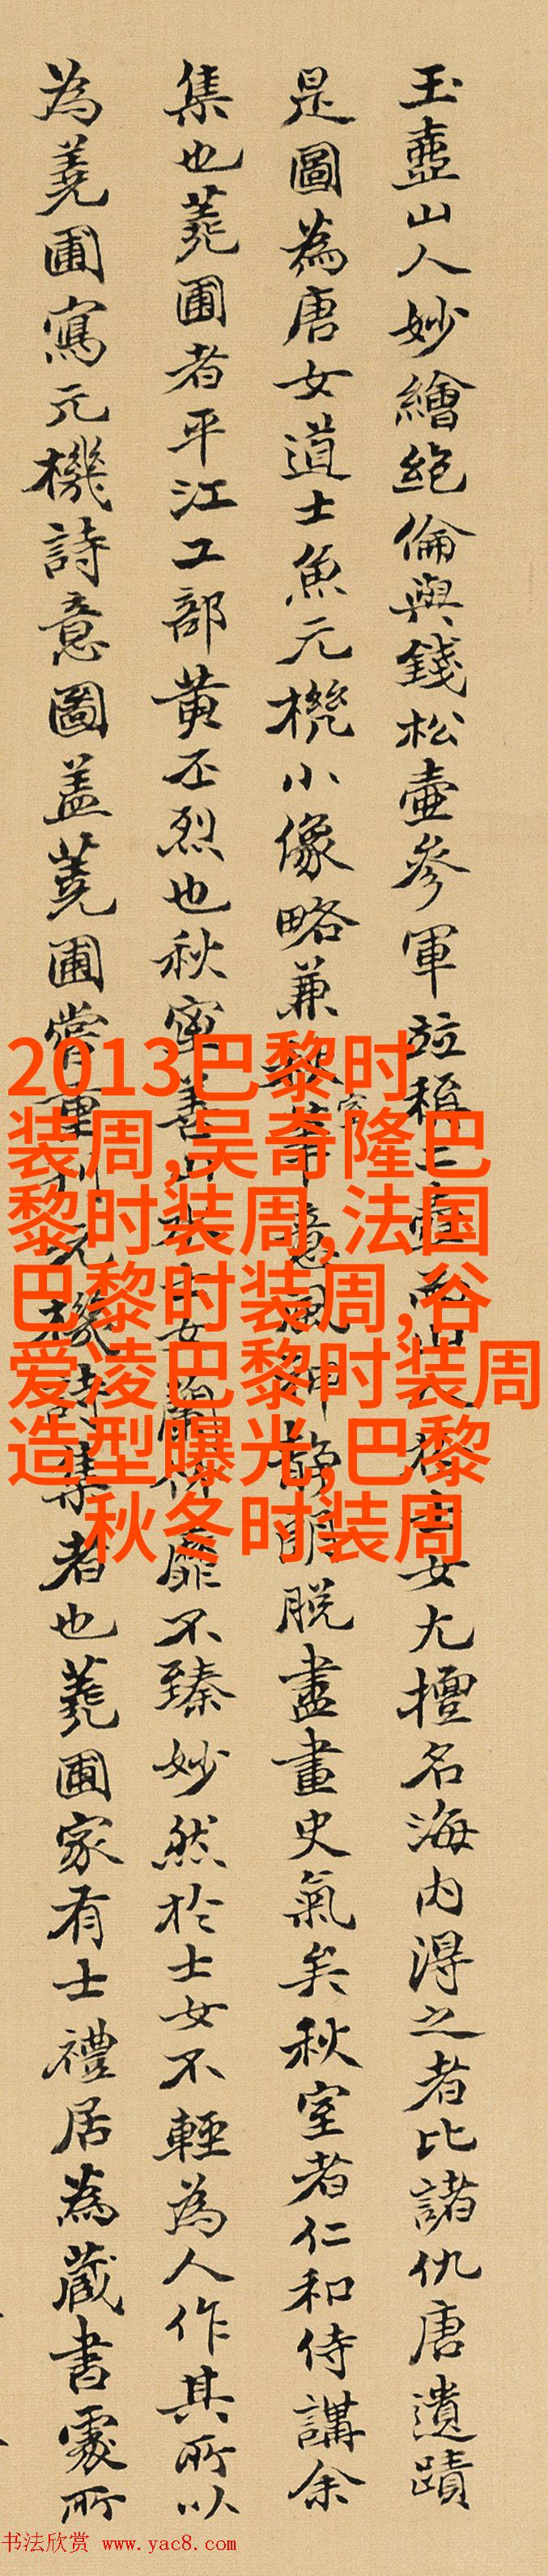 玉壺山人妙繪絶倫與錢松壺參軍竝稱二壺女尤擅名海内得之者比諸仇唐遺蹟
是圖為唐女道士魚元機小像略兼秋室筆意風神静脱盡畫史氣矣秋室者仁和侍講余
集也蕘圃者平江工部黄丕烈也秋室善山水士女蘭竹靡不臻妙然於士女不輕為人作其所以
為蕘圃寫元機詩意圖盖蕘圃嘗重刊元機詩集者也蕘圃家有士禮居為藏書處所
2013巴黎时
装周,吴奇隆巴
黎时装周,法国
巴黎时装周,谷
爱凌巴黎时装周
造型曝光,巴黎
秋冬时装周
书法欣赏 www.yac8.com